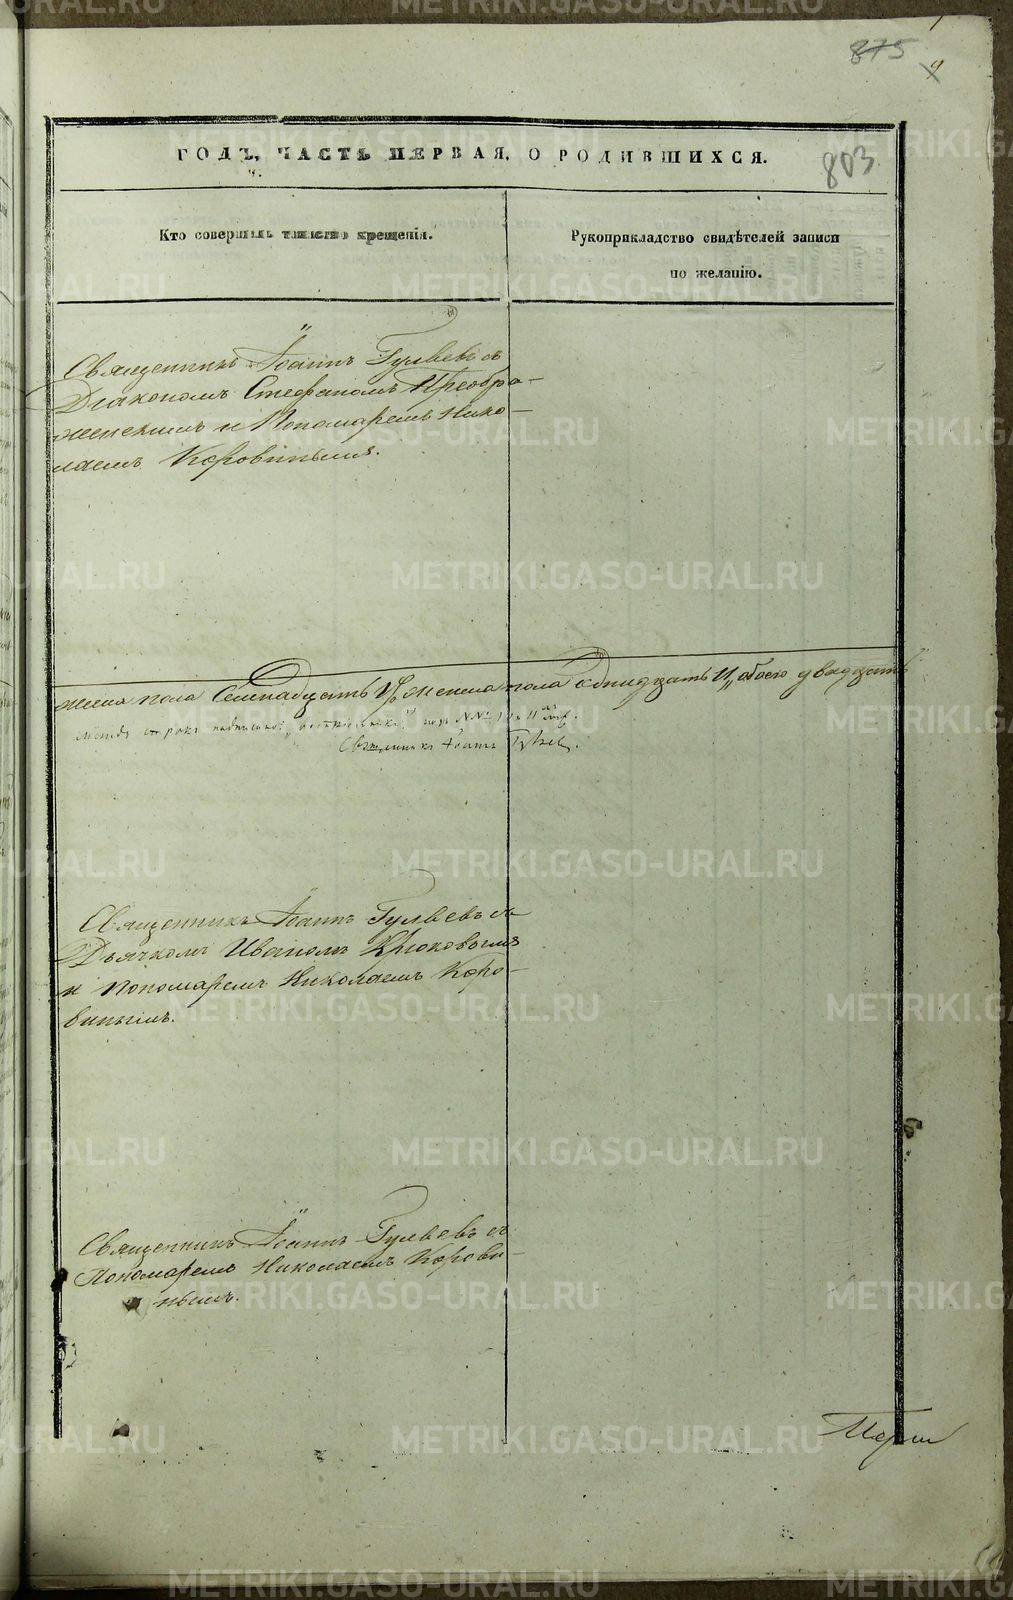 875
9
ГОДЪ, ЧАСТЬ ПЕРВАЯ, О РОДИВШИХСЯ.
803
Кто совершалъ таинство крещенія.
Рукоприкладство свидѣтелей записи
по желанію.
Священникъ Іоаннъ Гуляевъ съ
Діакономъ Стефаномъ Преобра-
женскимъ и Пономаремъ Нико-
лаемъ Коровинымъ.
жеска пола Семнадцать 17, женска пола одинадцать 11, обоего двадцать
между строкъ подписано: под №№ 10 и 11
Священникъ Іоаннъ Гуляевъ.
Священникъ Іоаннъ Гуляевъ съ
Дьячкомъ Иваномъ Крюковымъ
и Пономаремъ Николаемъ Коро-
винымъ.
Священникъ Іоаннъ Гуляевъ съ
Пономаремъ Николаемъ Корови-
нымъ.
METRIKI.GASO-URAL.RU